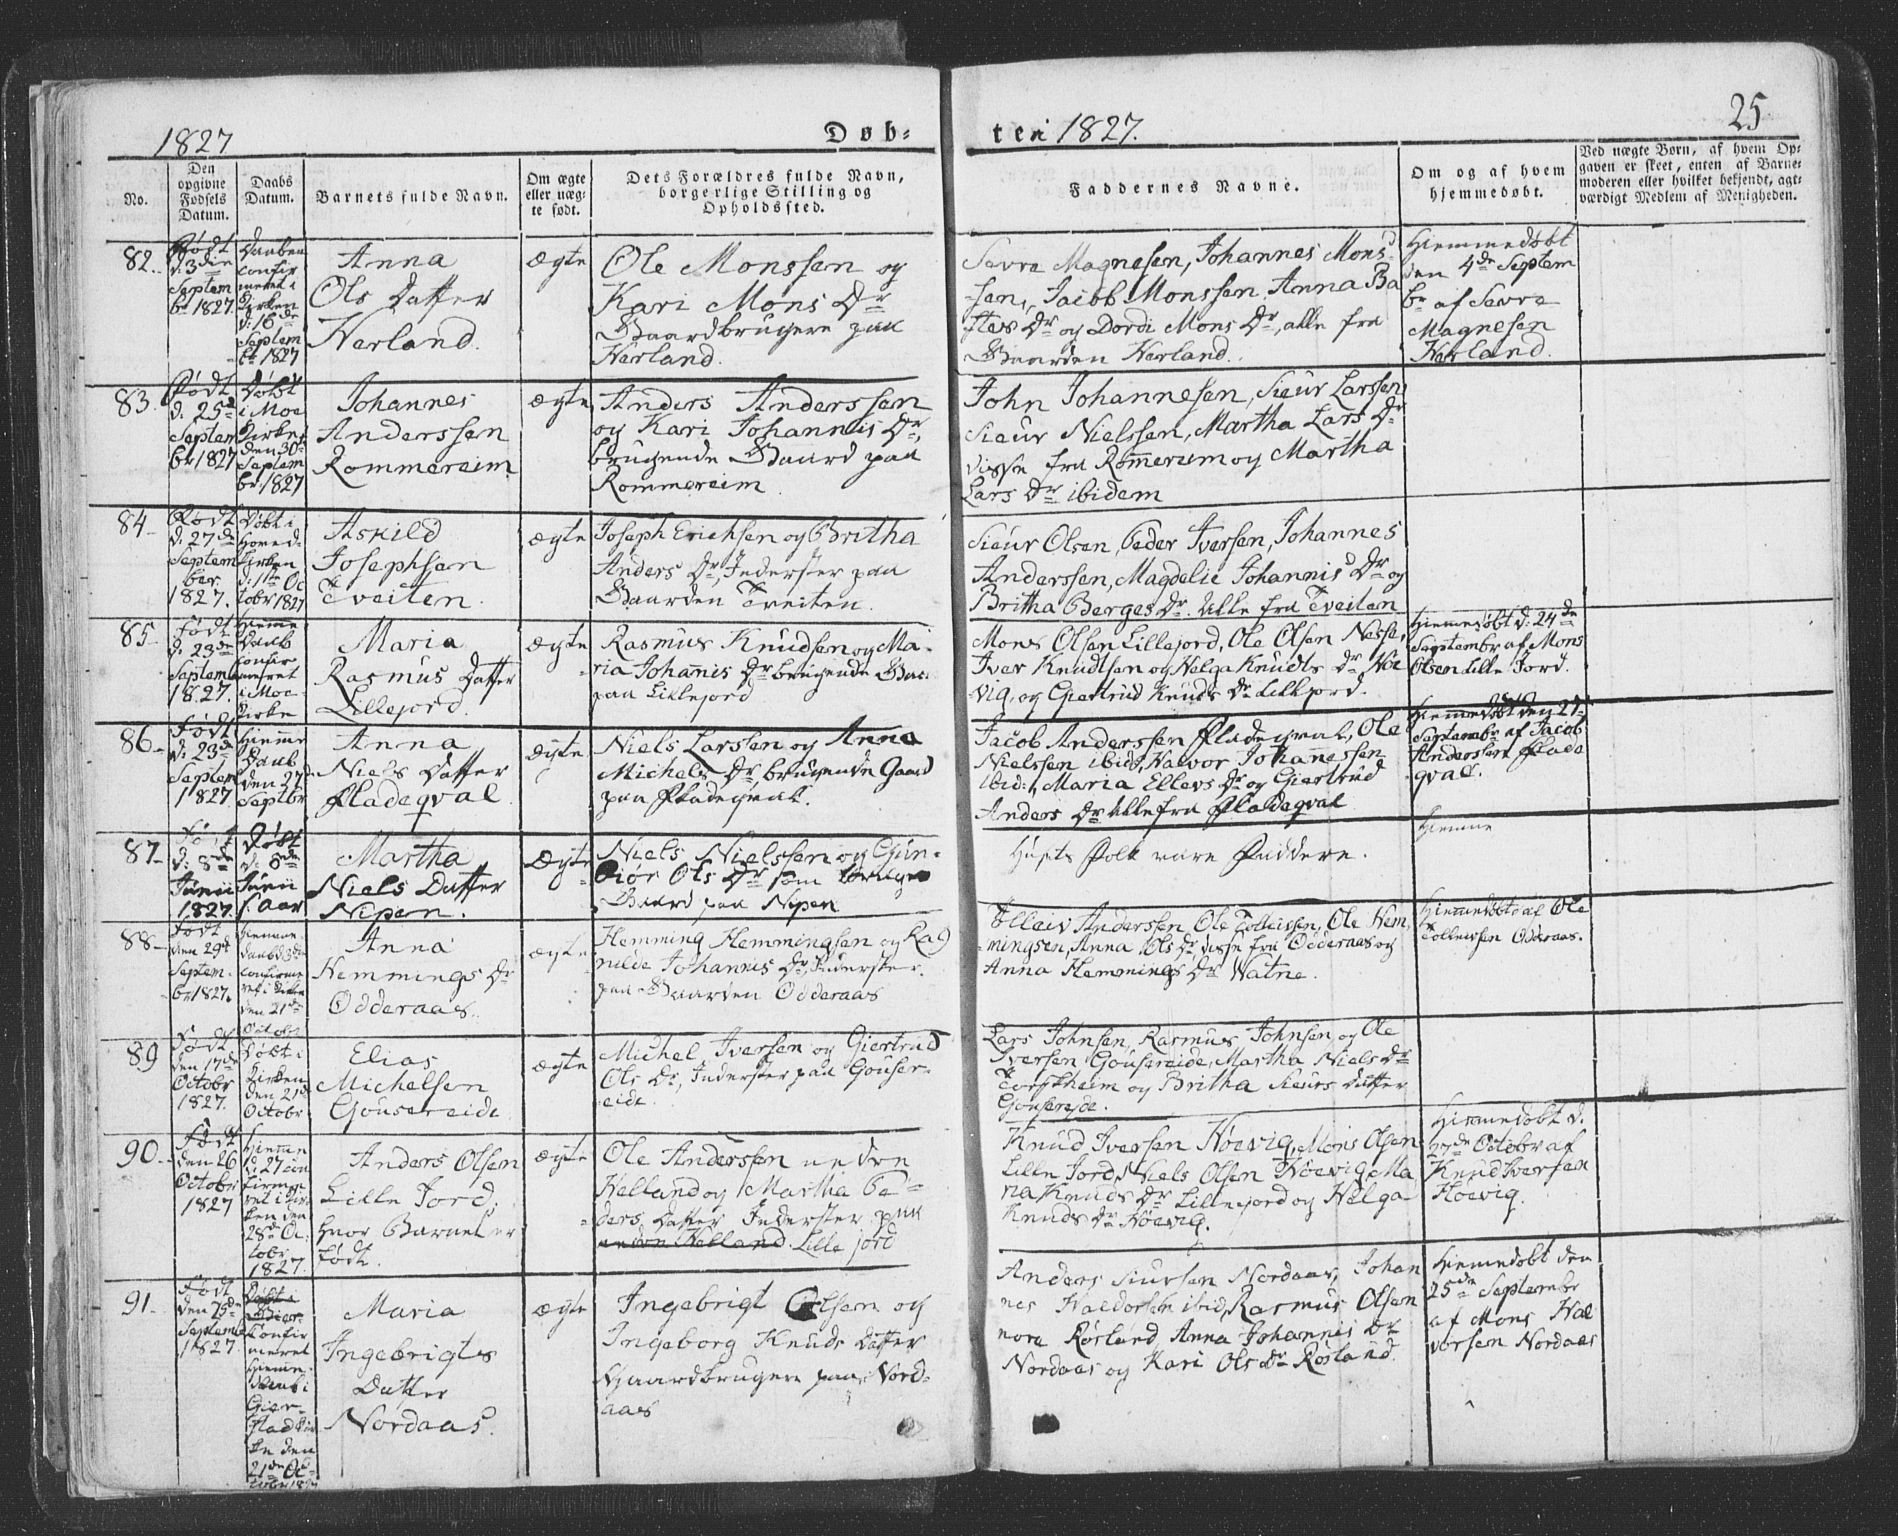 1827
Døb-
ten 1827.
25
No.
Den opgivne Fødsels Datum.
Daabs Datum.
Barnets fulde Navn.
Om ægte eller uæg-
te født.
Dets Forældres fulde Navn,
borgerlige Stilling og
Opholdssted.
Faddernes Navne.
Om og af hvem
hjemmedøbt.
Ved uægte Børn, af hvem Op-
gaven er skeet, enten af Barne-
moderen eller hvilket bekjendt, agt-
værdigt Medlem af Menigheden.
82.
Født
d. 3die
Septem
br 1827.
Daaben
confir
meret i
Kirken
d: 16de
Septem
br 1827
Anna
Ols Datter
Herland.
ægte
Ole Monssen og
Kari Mons Dr
Gaardbrugere paa
Herland.
Sevre Magnesen, Johannes Mons-
sen, Jacob Monssen, Anna Ba
stes Dr og Dordi Mons Dr, alle fra
Gaarden Herland.
Hiemmedøbt
den 4de Septem
br af Sevre
Magnesen
Herland.
83.
Født
d. 25de
Septem
br 1827
Døbt
i Moe
Kirke
den 30te
Septem
br 1827
Johannes
Anderssen
Rommereim
ægte
Anders Anderssen
og Kari Johannis Dr,
brugende Gaard paa
Rommereim.
John Johannesen, Sieur Larssen
Sieur Nielssen, Martha Lars Dr
disse fra Romereim og Martha
Lars Dr ibidem
84
Født
d. 27de
Septem
ber
1827.
Døbt i
Hoved-
Kirken
d: 11te Oc
tobr 1827
Askild
Josephsen
Tveiten.
ægte
Joseph Erichsen og Britha
Anders Dr, Inderster paa
Gaarden Tveiten.
Sieur Olsen, Peder Iversen, Johannes
Anderssen, Magdelie Johannis Dr og
Britha Berges Dr. Alle fra Tveiten
85.
Født
d. 23de
Septemb
1827.
Hiemme
Daab
confir
meret
i Moe
Kirke
Maria
Rasmus Datter
Lillejord.
ægte
Rasmus Knudsen og Ma-
ria Johannis Dr brugende Gaard
paa Lillejord
Mons Olsen Lillejord, Ole Olsen Nesse,
Iver Knudtsen og Helga Knudts Dr Hoe
vig, og Giertrud Knuds Dr Lillejord.
Hiemmedøbt d: 24de
Septembr af Mons
Olsen Lille Jord.
86
Født
d. 23de
Septem
1827.
Hiemme
Daab
den 27d
Septbr
Anna
Niels Datter
Fladeqval.
ægte
Niels Larssen og Anna
Michels Dr brugende Gaard
paa Fladeqval.
Jacob Anderssen Fladeqval, Ole
Nielssen ibid, Halvor Johannessen
ibid:, Maria Ellevs Dr og Giertrud
Anders Dr Alle fra Fladeqval
Hiemmedøbt den 27
Septembr af Jacob
Anderssen Flade
qval.
87
Født
d: 8de
Junii
1827.
Døbt
d: 8de
Junii
s: Aar
Martha
Niels Datter
Nipen.
ægte
Niels Nielssen og Gun-
bior Ols Dr som bruger
Gaard paa Nipen
Husets Folk vare Faddere.
Hiemme
88
Født
den 29de
Septem-
br 1827.
Hiemme
confirme
ret i Kirken
den 21de
Octobr
Anna
Hemmings Dr
Odderaas.
ægte
Hemming Hemmingsen og Rag
nilde Johannis Dr, Inderster
paa Gaarden Odderaas
Ellev Anderssen, Ole Tolleivsen, Ole Hem
mingsen, Anna Ols Dr, disse fra Odderaas og
Anna Hemmings Dr Watne.
Hiemmedøbt af Ole
Tolleivsen Odderaas.
89
Født
den 17de
Octobr
1827.
Døbt i
Kirken
den 21de
Octobr
Elias
Michelsen
Gousereide
ægte
Michel Iversen og Giertrud
Ols Dr, Inderster paa Gouser-
eide.
Lars Johnsen, Rasmus Johnsen og Ole
Iversen, Gousereide, Martha Niels Dr
Torskheim og Britha Sieurs Datter
Gousereide.
90
Født
den 26
Octobr
1827
Hiemme
d. 27 con
firme
ret i Kir
ken den
28de Oc
tobr
1827.
Anders Olsen
Lille Jord,
hvor Barnet er
født.
ægte
Ole Anderssen nedre
Helland og Martha Pe-
ders Datter Inderster paa
nedre Helland. Lille jord
Knud Iversen Hoevig, Mons Olsen
Lille Jord, Niels Olsen Hoevig, Ma
ria Knuds Dr Lillejord og Helga
Knuds Dr Hoevig.
Hiemmedøbt d.
27de Octobr af
Knud Iversen
Hoevig.
91.
Født
den 25de
Septemb
1827.
Døbt i
Confir
meret
Hieme
Daab i
Gier-
stad Kir
ke den
21de Oc
tober 1827
Maria
Ingebrigts
Datter
Nordaas.
ægte
Ingebrigt Olsen og
Ingeborg Knuds Datter
Gaardbrugere paa Nord-
aas
Anders Siursen Nordaas, Johan
nes Haldorsen ibid, Rasmus Olsen
nore Rørland Anna Johannis Dr
Nordaas og Kari Ols Dr Røsland.
Hiemmedøbt den
25de Septembr
af Mons Hal
vorsen Nordaas